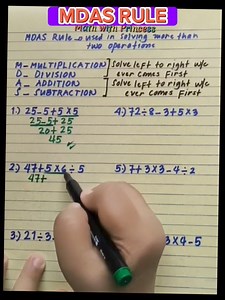 MDAS RULE
Math with Princess
MDAS Rule - used in solving more than
two operations
M - MULTIPLICATION
D - DIVISION
Solve left to right w/c
ever comes First
A - ADDITION
S - SUBTRACTION
Solve left to right w/c
ever comes First
1.) 25-5+5×5
25-5+25
20+25
45
4.) 72÷8-3+5×3
2.) 47+5×6÷5
47+
5.) 7+3×3-4÷2
3.) 21÷3
×3×4-5